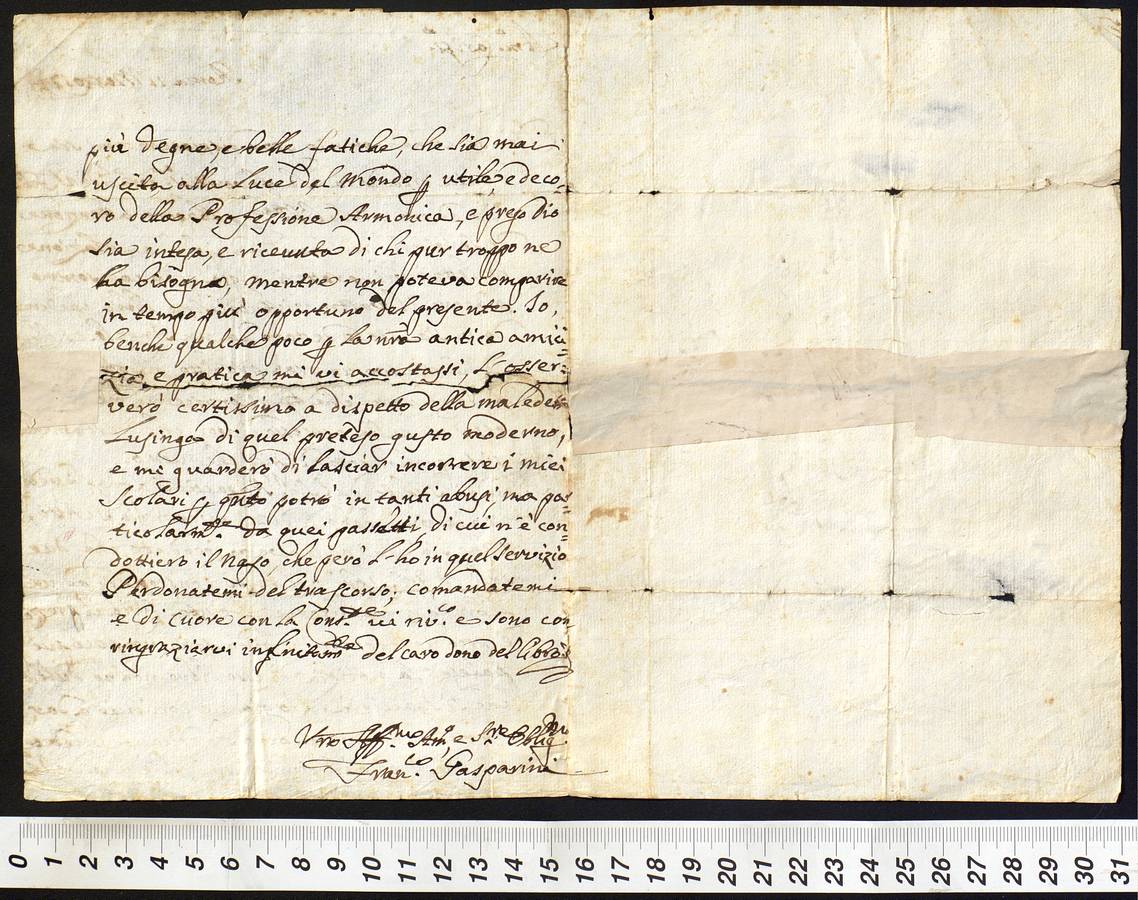 più degne, e belle fatiche, che sia mai
uscita alla Luce del Mondo p utile, e deco-
ro della Professione Armonica, e prego Dio
sia intesa, e ricevuta di chi pur troppo ne
ha bisogno, mentre non poteva comparire
in tempo più opportuno del presente. Io,
benche qualche poco p la nra antica amici=
zia, e pratica mi vi accostassi, L'osser=
verò certissimo a dispetto della maledetta
Lusinga di quel preteso gusto moderno,
e mi guarderò di lasciar incorrere i miei
Scolari p qnto potrò in tanti abusi, ma par=
ticolarmte. da quei passetti, di cui n'è con=
dottiero il Naso che però l'hò in quel servizio
Perdonatemi del trascorso; comandatemi
e di Cuore con la Conste. vi rivo. e sono con
ringraziarvi infinitamte del caro dono del libro.
Vro Affmo. Amo, e Sre Obligmo.
Franco. Gasparini
0 1 2 3 4 5 6 7 8 9 10 11 12 13 14 15 16 17 18 19 20 21 22 23 24 25 26 27 28 29 30 31